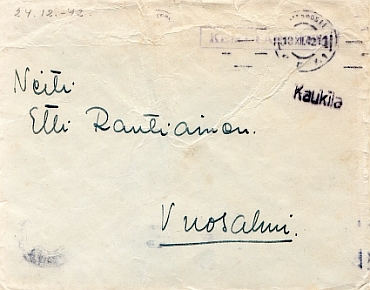 24.12.-42.
18.XII.42
Kaukila
Neiti
Elli Rantiainen.
Vuosalmi.